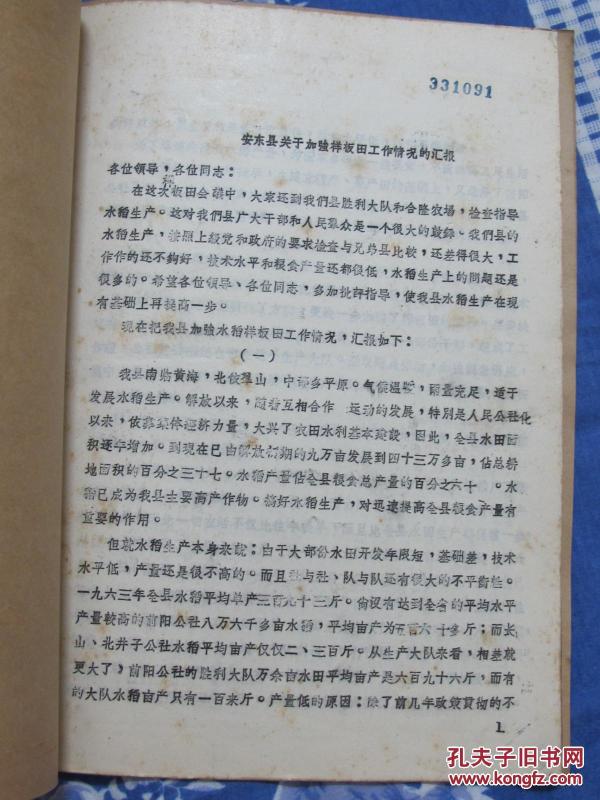 331091
安东县关于加强样板田工作情况的汇报
各位领导，各位同志：
在这次板田会议中，大家还到我们县胜利大队和合隆农场，检查指导
水稻生产。这对我们县广大干部和人民群众是一个很大的鼓舞。我们县的
水稻生产，按照上级党和政府的要求检查与兄弟县比较，还差得很大，工
作作的还不够好，技术水平和粮食产量还都很低，水稻生产上的问题还是
很多的。希望各位领导、各位同志，多加批评指导，使我县水稻生产在现
有基础上再提高一步。
现在把我县加强水稻样板田工作情况，汇报如下：
（一）
我县南临黄海，北依群山，中部多平原。气候温暖，雨量充足，适于
发展水稻生产。解放以来，随着互相合作 运动的发展，特别是人民公社化
以来，依靠集体经济力量，大兴了农田水利基本建设，因此，全县水田面
积逐年增加。到现在已由解放初期的九万亩发展到四十三万多亩，佔总耕
地面积的百分之三十七。水稻产量佔全县粮食总产量的百分之六十 。水
稻已成为我县主要高产作物。搞好水稻生产，对迅速提高全县粮食产量有
重要的作用。
但就水稻生产本身来说：由于大部份水田开发年限短，基础差，技术
水平低，产量还是很不高的。而且社与社、队与队还有很大的不平衡性。
一九六三年全县水稻平均单产三百九十三斤。倘没有达到全省的平均水平
产量较高的前阳公社八万六千多亩水稻，平均亩产为五百六十多斤；而长
山、北井子公社水稻平均亩产仅仅二、三百斤。从生产大队来看，相差就
更大了，前阳公社的胜利大队万余亩水田平均亩产是六百九十六斤，而有
的大队水稻亩产只有一百来斤。产量低的原因：除了前几年政策贯彻的不
1
孔夫子旧书网
www.kongfz.com